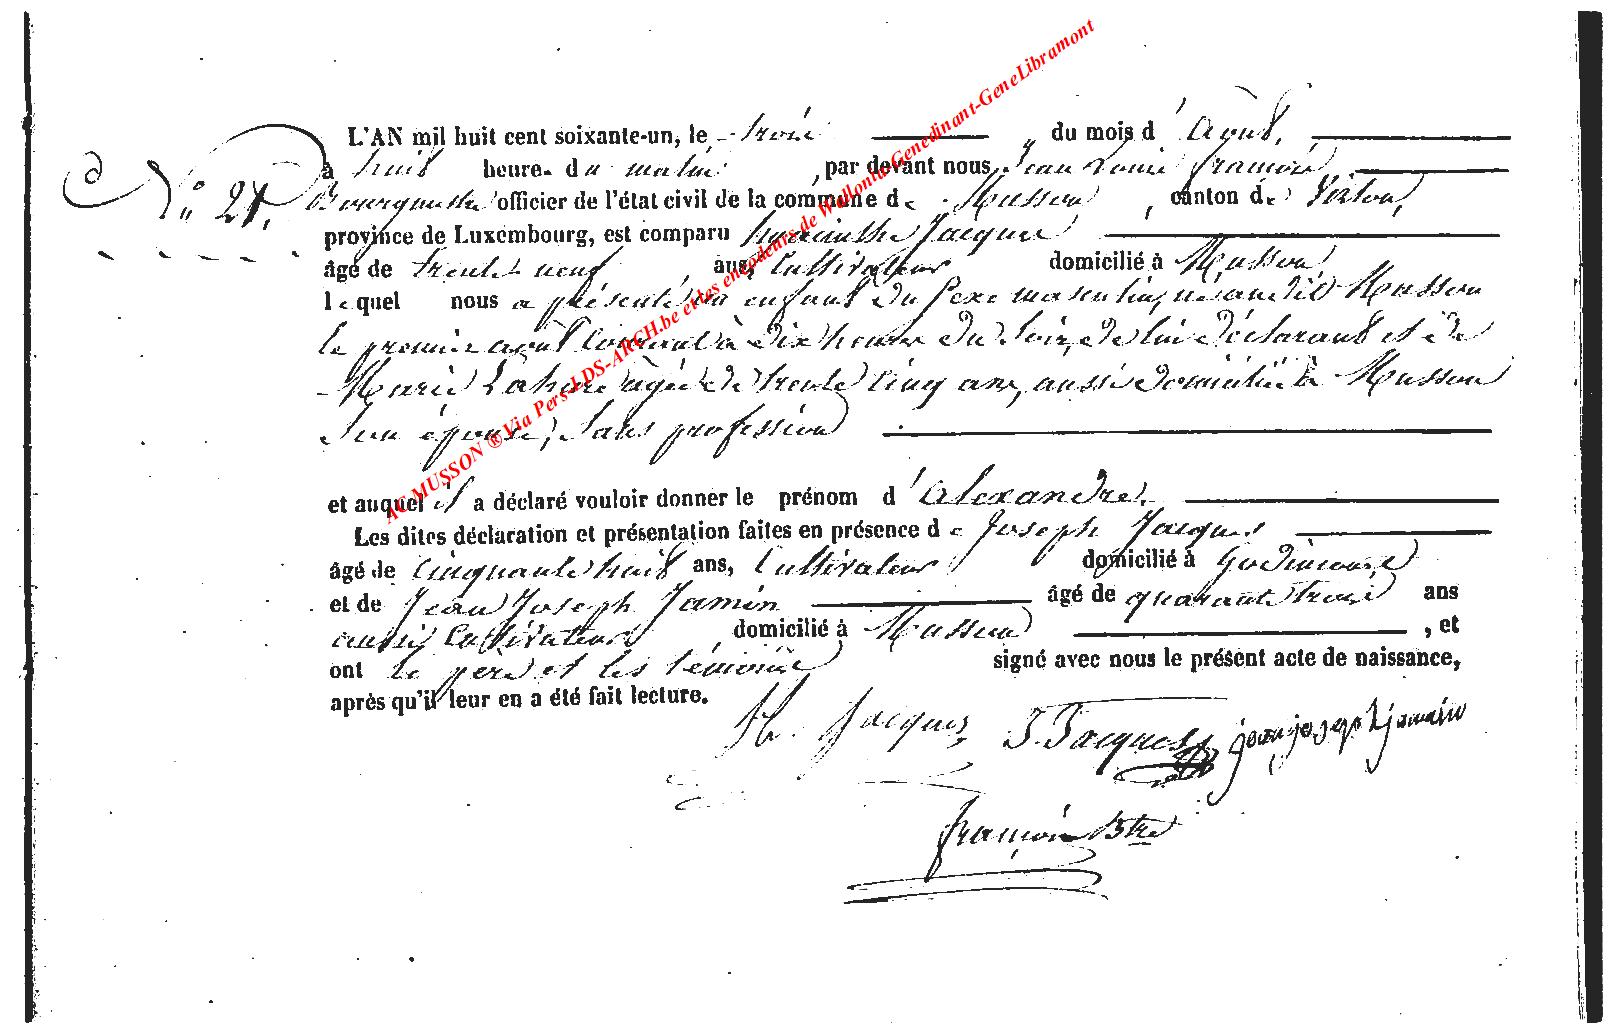 L'AN mil huit cent soixante-un, le trois du mois d' Août,
N° 27. à huit heure. du matin, par devant nous Jean Louis françois
Bourgmestre officier de l'état civil de la commune de Musson, canton de Virton,
province de Luxembourg, est comparu hyacinthe Jacques
âgé de trente neuf ans, Cultivateur domicilié à Musson
lequel nous a présenté un enfant du sexe masculin, né audit Musson
le premier août courant à dix heures du soir, de lui déclarant et de
Marie Lahure âgée de trente cinq ans, aussi domiciliée à Musson
son épouse, sans profession
et auquel il a déclaré vouloir donner le prénom d'Alexandre.
Les dites déclaration et présentation faites en présence de Joseph Jacques
âgé de cinquante huit ans, Cultivateur domicilié à
et de Jean Joseph Jamin âgé de quarante trois ans
aussi Cultivateur domicilié à Musson, et
ont le père et les témoins signé avec nous le présent acte de naissance,
après qu'il leur en a été fait lecture.
H. Jacques J. Jacques jean joseph jamin
françois Btre
AC MUSSON ® Via Pers-LDS-ARCH.be et les encodeurs de Wallonia-Genedinant-GeneLibramont